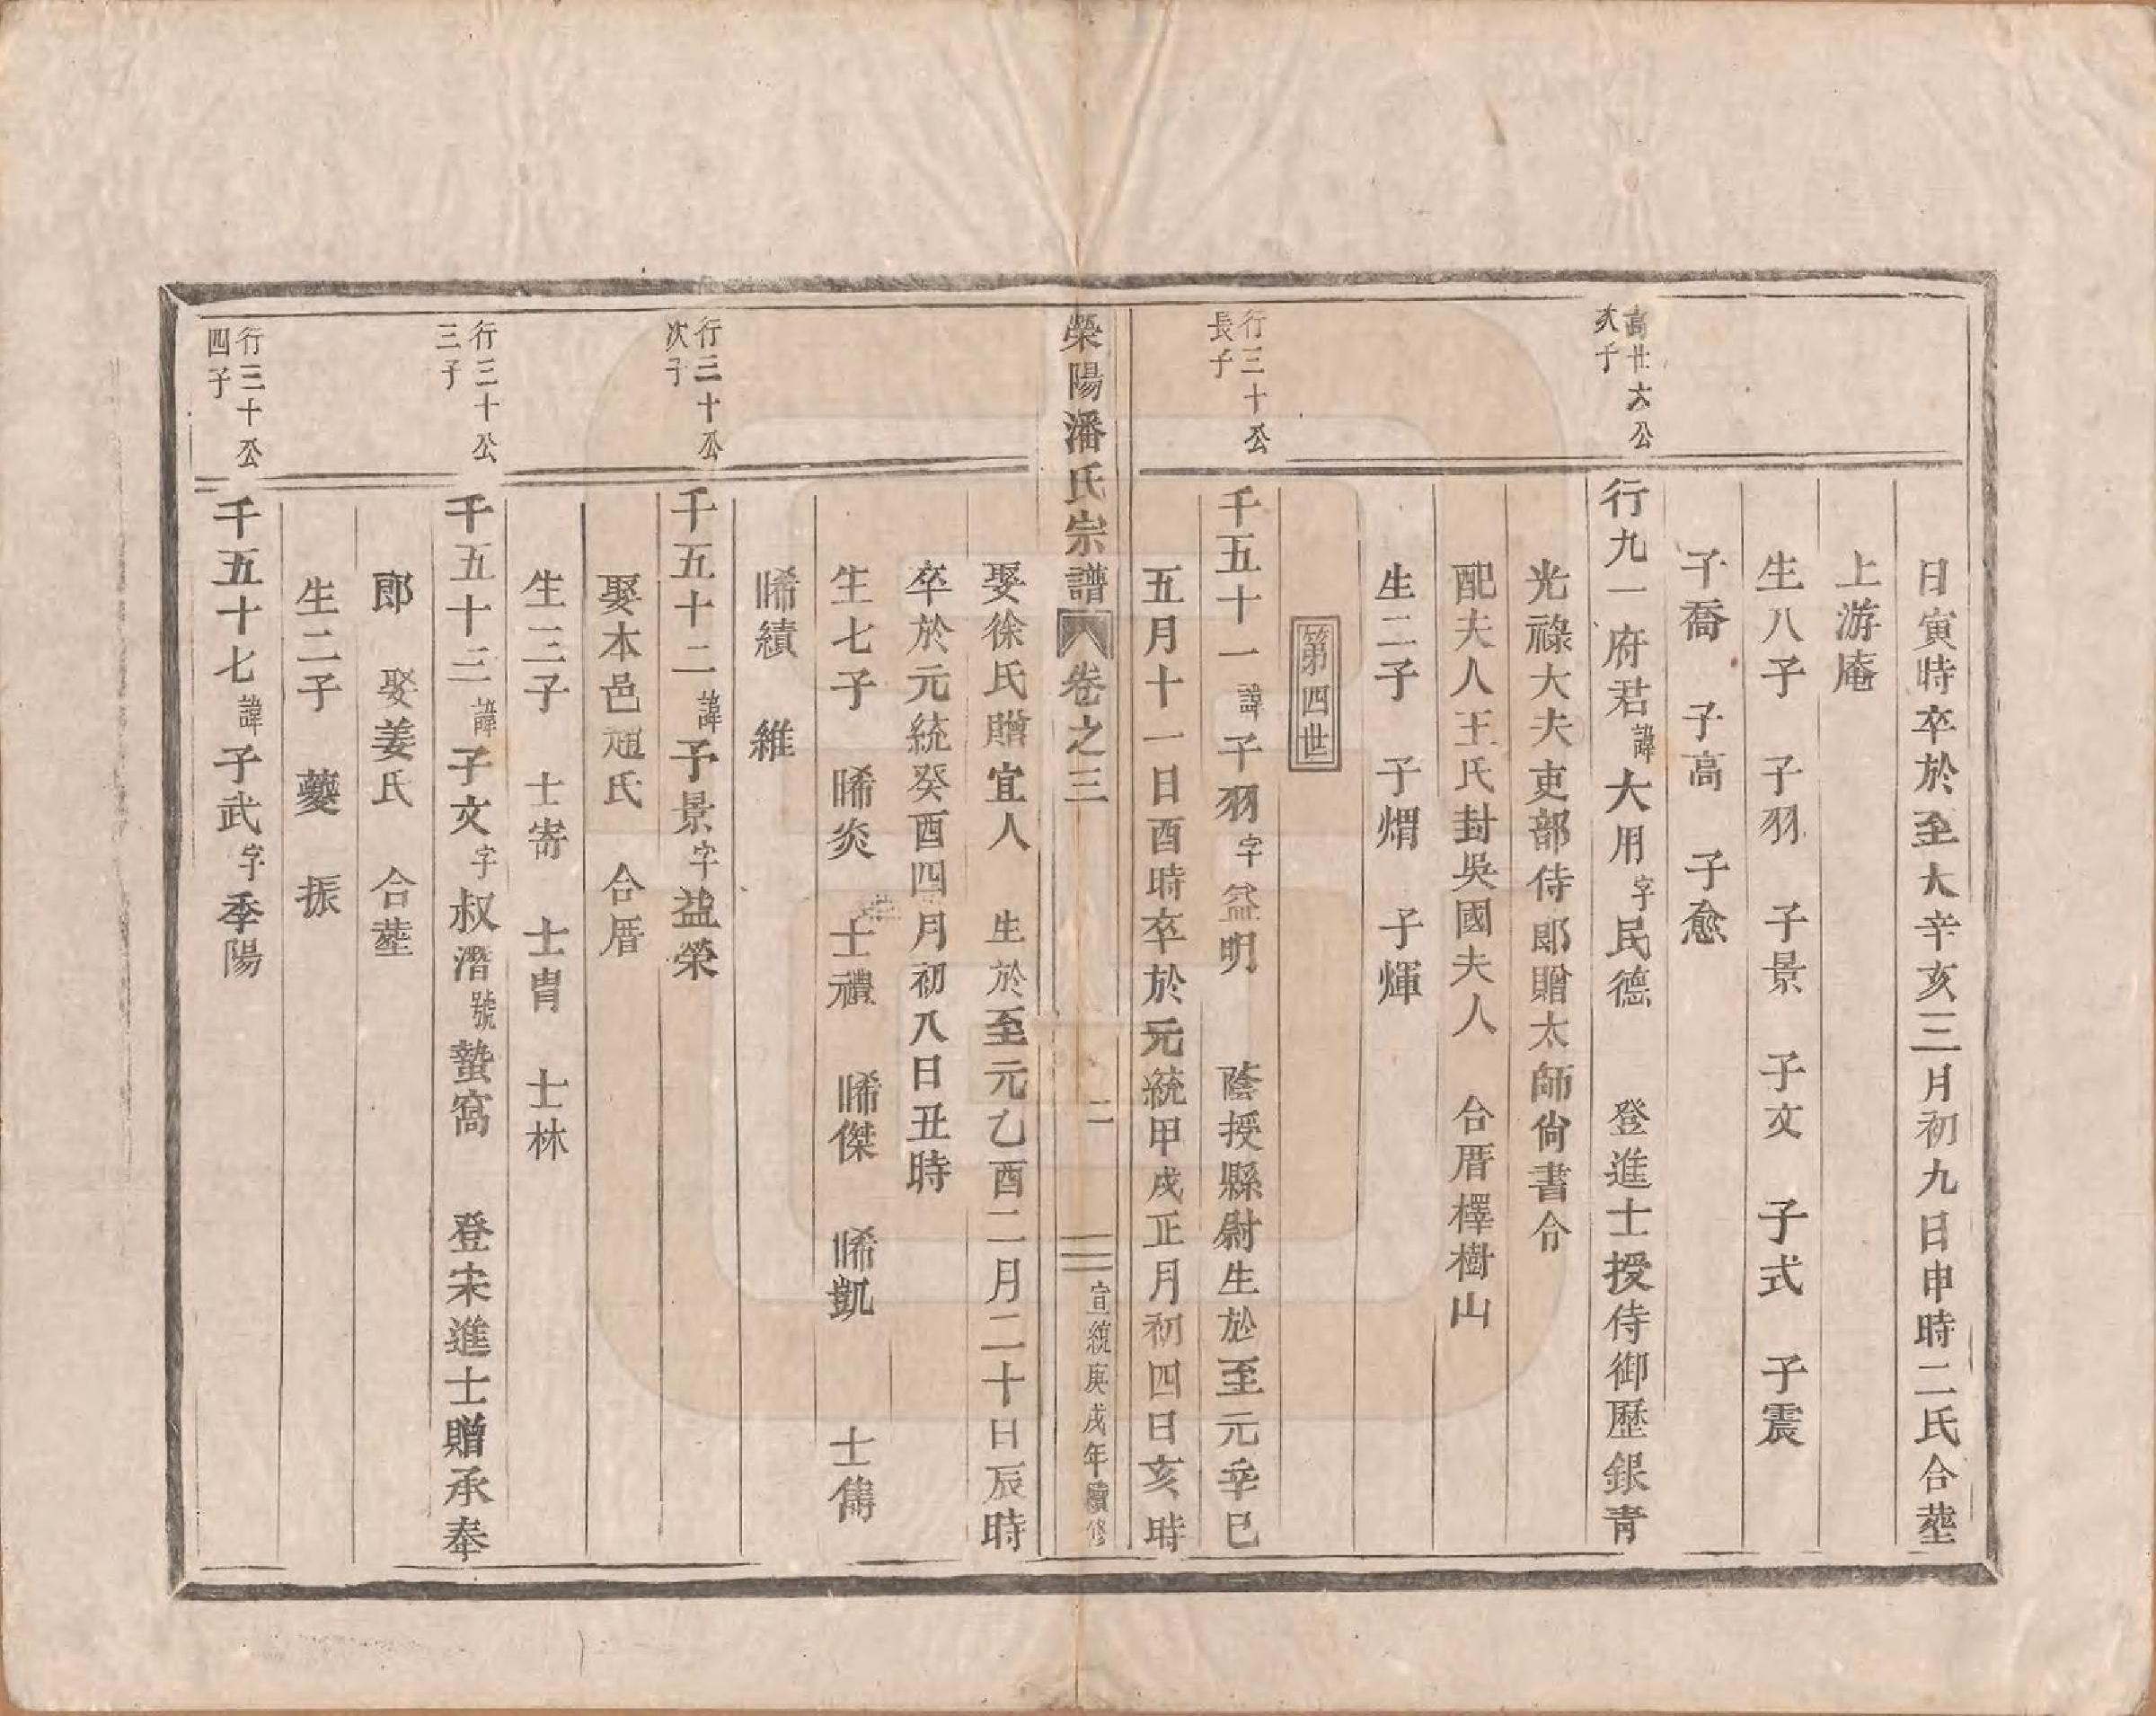 日寅時卒於至大辛亥三月初九日申時二氏合塟
上游庵
生八子　子羽　子景　子文　子式　子震
子喬　子高　子愈
高廿六公
次子
行九一府君諱大用字民德　登進士授侍御歷銀青
光祿大夫吏部侍郎贈太師尙書令
配夫人王氏封吳國夫人　合厝檡樹山
生二子　子熠　子輝
第四世
行三十公
長子
千五十一諱子羽字益明　蔭授縣尉生於至元辛巳
五月十一日酉時卒於元統甲戌正月初四日亥時
榮陽潘氏宗譜　卷之三　二　宣統庚戌年續修
娶徐氏贈宜人　生於至元乙酉二月二十日辰時
卒於元統癸酉四月初八日丑時
生七子　睎炎　士禮　睎傑　睎凱　士儁
睎績　維
行三十公
次子
千五十二諱子景字益榮
娶本邑趙氏　合厝
生三子　士寄　士胄　士林
行三十公
三子
千五十三諱子文字叔潛號蟄窩　登宋進士贈承奉
郎　娶姜氏　合塟
生二子　夔　振
行三十公
四子
千五十七諱子武字季陽